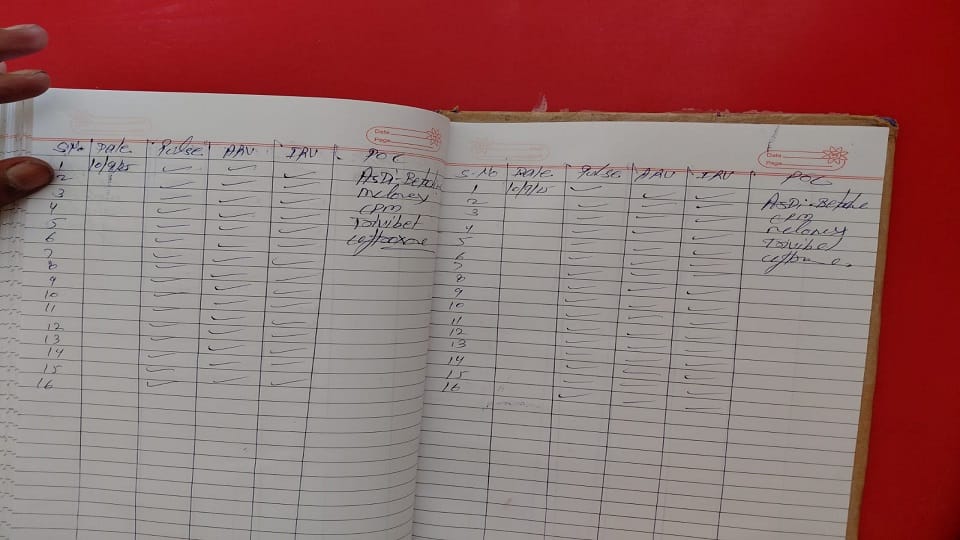 Date
Page
S.No Date Pulse ARV IRV POC
1 10/9/25 ✓ ✓ ✓ AsDi-Betone
2 ✓ ✓ ✓ melonex
3 ✓ ✓ ✓ CPM
4 ✓ ✓ ✓ Tonivibet
5 ✓ ✓ ✓
6 ✓ ✓ ✓
7 ✓ ✓ ✓
8 ✓ ✓ ✓
9 ✓ ✓ ✓
10 ✓ ✓ ✓
11 ✓ ✓ ✓
12 ✓ ✓ ✓
13 ✓ ✓ ✓
14 ✓ ✓ ✓
15 ✓ ✓ ✓
16 ✓ ✓ ✓
Date
Page
S.No Date Pulse ARV IRV POC
1 10/9/25 ✓ ✓ ✓ AsDi-Betone
2 ✓ ✓ ✓ CPM
3 ✓ ✓ ✓ melonex
4 ✓ ✓ ✓
5 ✓ ✓ ✓
6 ✓ ✓ ✓
7 ✓ ✓ ✓
8 ✓ ✓ ✓
9 ✓ ✓ ✓
10 ✓ ✓ ✓
11 ✓ ✓ ✓
12 ✓ ✓ ✓
13 ✓ ✓ ✓
14 ✓ ✓ ✓
15 ✓ ✓ ✓
16 ✓ ✓ ✓